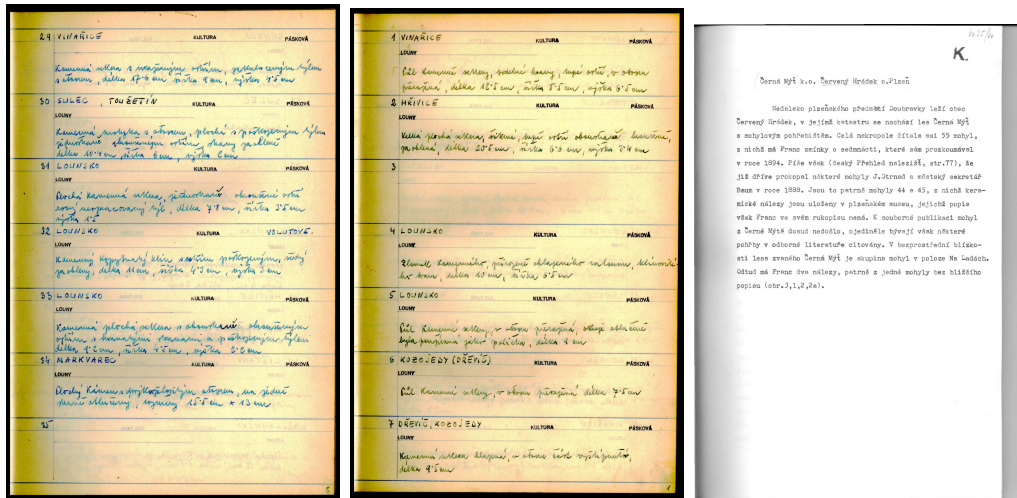 29 VINAŘICE KULTURA PÁSKOVÁ
LOUNY
Kamenná sekera s
s otvorem, délka 17·6 cm, šířka 8 cm, výška 4·5 cm
30 SULEC, TOUŠETÍN KULTURA PÁSKOVÁ
Kamenná motyka s otvorem, plochá s poškozeným týlem
délka 10·4 cm šířka 6 cm, výška 6 cm
31 LOUNSKO KULTURA PÁSKOVÁ
LOUNY
Plochá kamenná sekera, jednostranně obroušené ostří
týl, délka 7·8 cm, šířka 3·5 cm
výška 1·5
32 LOUNSKO VOLUTOVÉ.
LOUNY
Kamenný kopytovitý klín s ostřím poškozeným,
zaoblený, délka 11 cm, šířka 4·3 cm, výška 3 cm
33 LOUNSKO KULTURA PÁSKOVÁ
LOUNY
Kamenná plochá sekera s oboustranně obroušeným
ostřím s a poškozeným týlem
délka 9·2 cm, šířka 4·5 cm, výška 2·2 cm
34 MARKVAREC KULTURA PÁSKOVÁ
LOUNY
Plochý kámen s dvojkuželovitým otvorem, na jedné
straně otlučený, rozměry 15·5 cm × 13 cm
35
5
1 VINAŘICE KULTURA PÁSKOVÁ
LOUNY
Půl kamenné sekery, hrany, tupé ostří, v otvoru
přeražená, délka 12·5 cm, šířka 5·5 cm, výška 6·5 cm
2 HŘIVICE KULTURA PÁSKOVÁ
LOUNY
Velká plochá sekera, tupé ostří oboustranně broušené,
zaoblená, délka 20·5 cm, šířka 6·6 cm, výška 3·4 cm
3 KULTURA PÁSKOVÁ
LOUNY
4 LOUNSKO KULTURA PÁSKOVÁ
LOUNY
Zlomek kamenného,
tvaru, délka 10 cm, šířka 6·5 cm
5 LOUNSKO KULTURA PÁSKOVÁ
LOUNY
Půl kamenné sekery, v otvoru přeražená, otlučené
byla používána jako palička, délka 9 cm
6 KOZOJEDY (DŘEVÍČ) KULTURA PÁSKOVÁ
LOUNY
Půl kamenné sekery, v otvoru přeražená délka 7·5 cm
7 DŘEVÍČ, KOZOJEDY KULTURA PÁSKOVÁ
LOUNY
Kamenná sekera hlazená, v otvoru část vyštípnutá,
délka 9·5 cm
1
K.
Černá Mýť k.o. Červený Hrádek o.Plzeň
Nedaleko plzeňského předměstí Doubravky leží obec
Červený Hrádek, v jejímž katastru se nachází les Černá Mýť
s mohylovým pohřebištěm. Celá nekropole čítala asi 55 mohyl,
z nichž má Franc zmínky o sedmnácti, které sám prozkoumával
v roce 1894. Píše však (český Přehled nalezišť, str.77), že
již dříve prokopal některé mohyly J.Strnad a městský sekretář
Baum v roce 1888. Jsou to patrně mohyly 44 a 45, z nichž kera-
mické nálezy jsou uloženy v plzeňském museu, jejichž popis
však Franc ve svém rukopisu nemá. K souborné publikaci mohyl
z Černé Mýtě dosud nedošlo, ojediněle bývají však některé
pohřby v odborné literatuře citovány. V bezprostřední blízko-
sti lesa zvaného Černá Mýť je skupina mohyl v poloze Na Ladách.
Odtud má Franc dva nálezy, patrně z jedné mohyly bez bližšího
popisu (obr.3,1,2,2a).